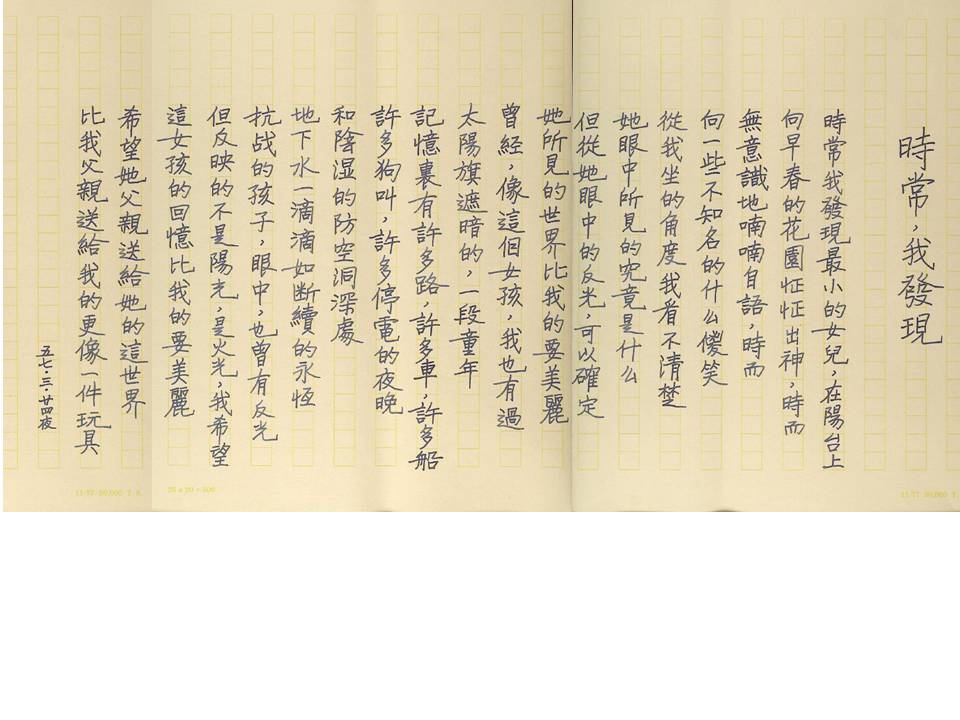 時常，我發現
時常我發現最小的女兒，在陽台上
向早春的花園怔怔出神，時而
無意識地喃喃自語，時而
向一些不知名的什么儍笑
從我坐的角度我看不清楚
她眼中所見的究竟是什么
但從她眼中的反光，可以確定
她所見的世界比我的要美麗
曾經，像這個女孩，我也有過
太陽旗遮暗的，一段童年
記憶裏有許多路，許多車，許多船
許多狗叫，許多停電的夜晚
和陰湿的防空洞深處
地下水一滴滴如断續的永恆
抗战的孩子，眼中，也曾有反光
但反映的不是陽光，是火光，我希望
這女孩的回憶比我的要美麗
希望她父親送給她的這世界
比我父親送給我的更像一件玩具
五七·三·廿四夜
11/77 50,000 T. S.
25 x 20 = 500
11/77 50,000 T.